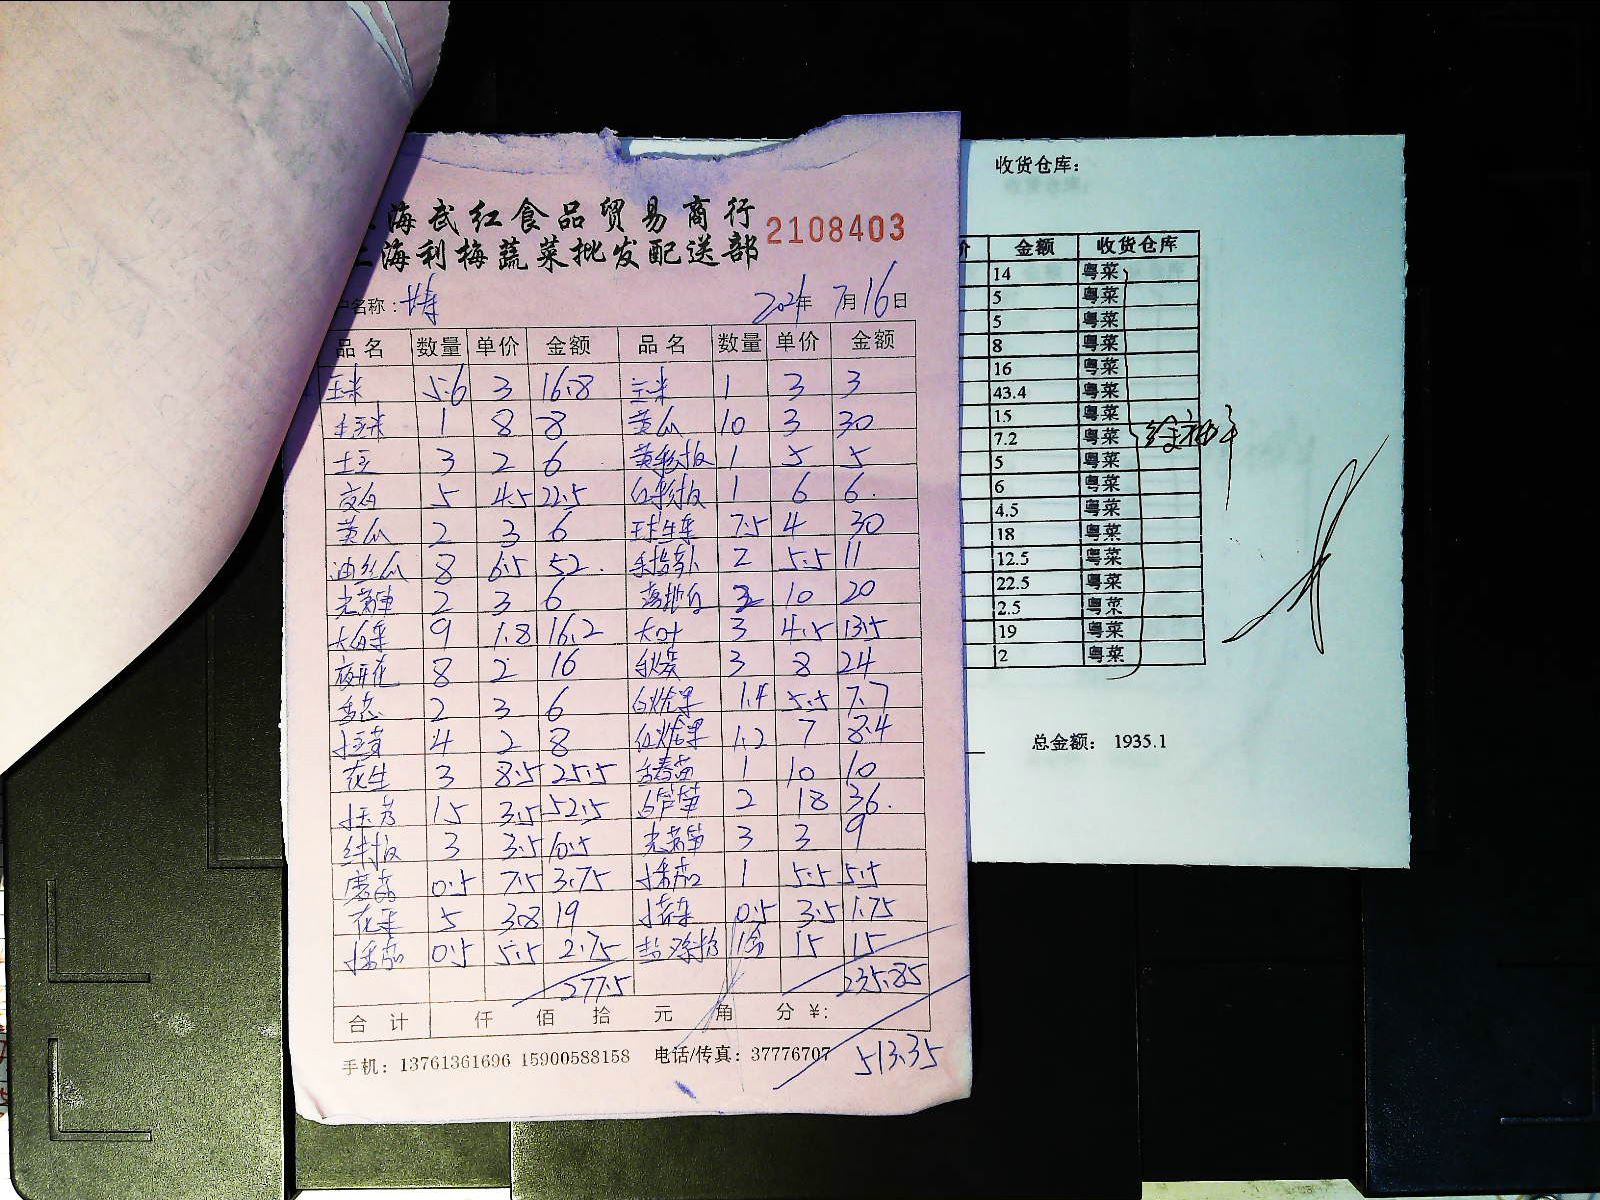 海武红食品贸易商行
海利梅蔬菜批发配送部 2108403
户名称： 2021年 7月16日
品名 数量 单价 金额 品名 数量 单价 金额
玉米 5.6 3 16.8 玉米 1 3 3
1 8 8 黄瓜 10 3 30
土豆 3 2 6 1 5 5
5 4.5 22.5 1 6 6
黄瓜 2 3 6 球生菜 7.5 4 30
油丝瓜 8 6.5 52 手指萝卜 2 5.5 11
光莴笋 2 3 6 2 10 20
大白菜 9 1.8 16.2 大叶 3 4.5 13.5
夜开花 8 2 16 3 8 24
香葱 2 3 6 1.4 5.5 7.7
4 2 8 1.2 7 8.4
花生 3 8.5 25.5 香春苗 1 10 10
15 3.5 52.5 芦笋 2 18 36
3 3.5 10.5 光莴笋 3 3 9
蘑菇 0.5 7.5 3.75 小番茄 1 5.5 5.5
花菜 5 3.8 19 0.5 3.5 1.75
小番茄 0.5 5.5 2.75 1 15 15
277.5 235.85
合计 仟 佰 拾 元 角 分 ¥:
手机：13761361696 15900588158 电话/传真：37776707 513.35
收货仓库：
价 金额 收货仓库
14 粤菜
5 粤菜
5 粤菜
8 粤菜
16 粤菜
43.4 粤菜
15 粤菜
7.2 粤菜
5 粤菜
6 粤菜
4.5 粤菜
18 粤菜
12.5 粤菜
22.5 粤菜
2.5 粤菜
19 粤菜
2 粤菜
总金额： 1935.1